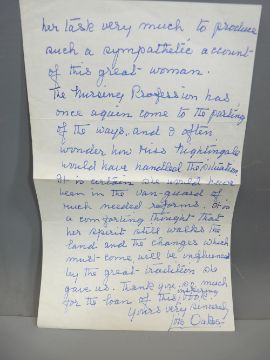 her task very much to produce
such a sympathetic account
of this great woman.
The Nursing Profession has
once again come to the parting
of the ways, and I often
wonder how Miss Nightingale
would have handled the situation
It is certain she would have
been in the van-guard of
much needed reforms. It is
a comforting thought that
her spirit still walks the
land and the changes which
must come will be influenced
by the great tradition she
gave us. Thank you so much
for the loan of this inspiring book.
Yours very sincerely
Oakes